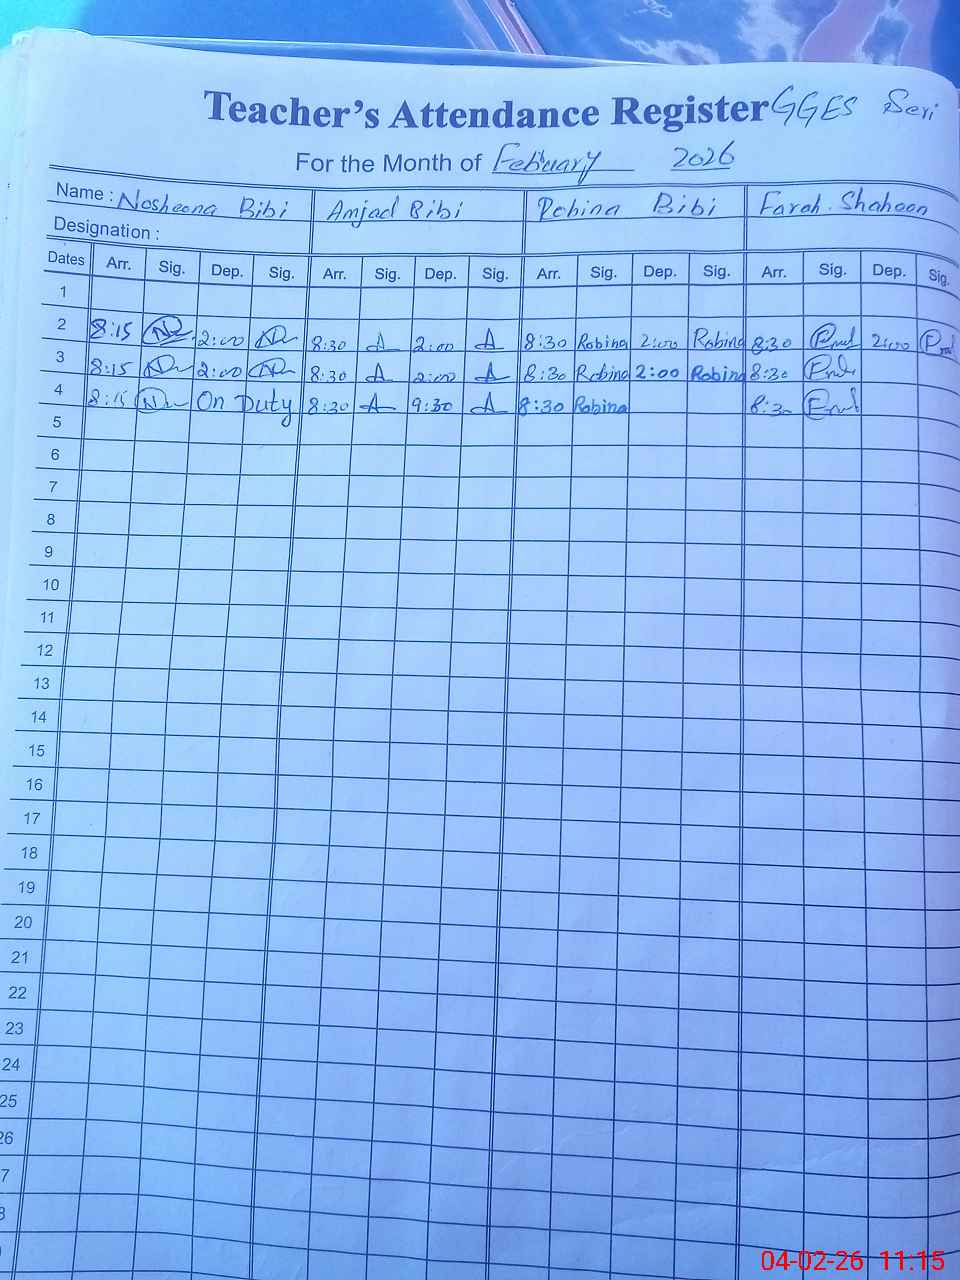 Teacher's Attendance Register GGES Seri
For the Month of February 2026
Name : Nosheena Bibi Amjad Bibi Robina Bibi Farah Shaheen
Designation :
Dates Arr. Sig. Dep. Sig. Arr. Sig. Dep. Sig. Arr. Sig. Dep. Sig. Arr. Sig. Dep. Sig.
1
2 8:15 2:00 8:30 A 2:00 A 8:30 Robina 2:00 Robina 8:30 2:00
3 8:15 2:00 8:30 A 2:00 A 8:30 Robina 2:00 Robina 8:30
4 8:15 On Duty 8:30 A 9:30 A 8:30 Robina 8:30
5
6
7
8
9
10
11
12
13
14
15
16
17
18
19
20
21
22
23
24
25
26
7
8
04-02-26 11:15